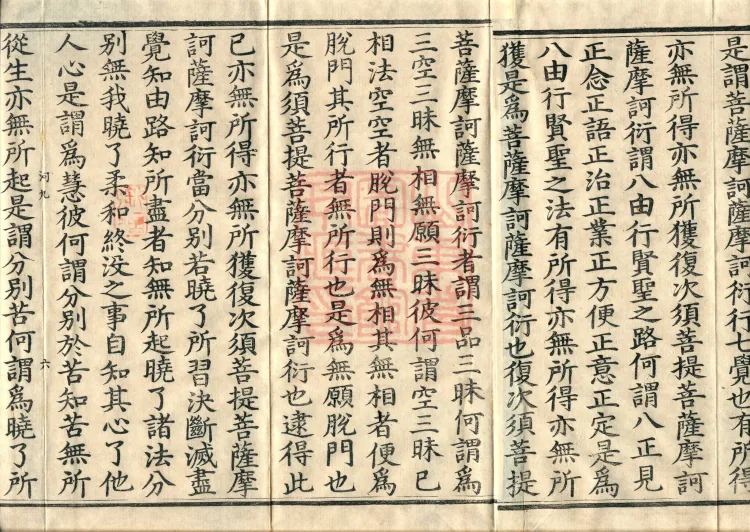 是謂菩薩摩訶衍行七覺也有所得
亦無所得亦無所獲復次須菩提菩薩摩訶
薩摩訶衍謂八由行賢聖之路何謂八正見
正念正語正治正業正方便正意正定是為
八由行賢聖之法有所得亦無所得亦無所
獲是為菩薩摩訶薩摩訶衍也復次須菩提
菩薩摩訶薩摩訶衍者謂三品三昧何謂為
三空三昧無相無願三昧彼何謂空三昧已
相法空空者脫門則為無相其無相者便為
脫門其所行者無所行也是為無願脫門也
是為須菩提菩薩摩訶薩摩訶衍也逮得此
已亦無所得亦無所獲復次須菩提菩薩摩
訶薩摩訶衍當分別若曉了所習決斷滅盡
覺知由路知所盡者知無所起曉了諸法分
別無我曉了柔和終没之事自知其心了他
人心是謂為慧彼何謂分別於苦知苦無所
河九
六
從生亦無所起是謂分別苦何謂為曉了所